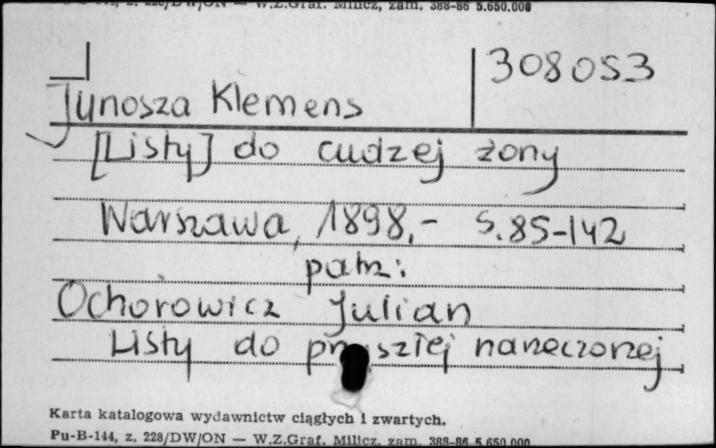 308053
Junosza Klemens
[Listy] do cudzej żony
Warszawa, 1898,- s.85-142
patrz:
Ochorowicz Julian
Listy do przyszłej narzeczonej
Karta katalogowa wydawnictw ciągłych i zwartych.
Pu-B-144, z. 228/DW/ON — W.Z.Graf. Milicz, zam. 388-86 5.650.000